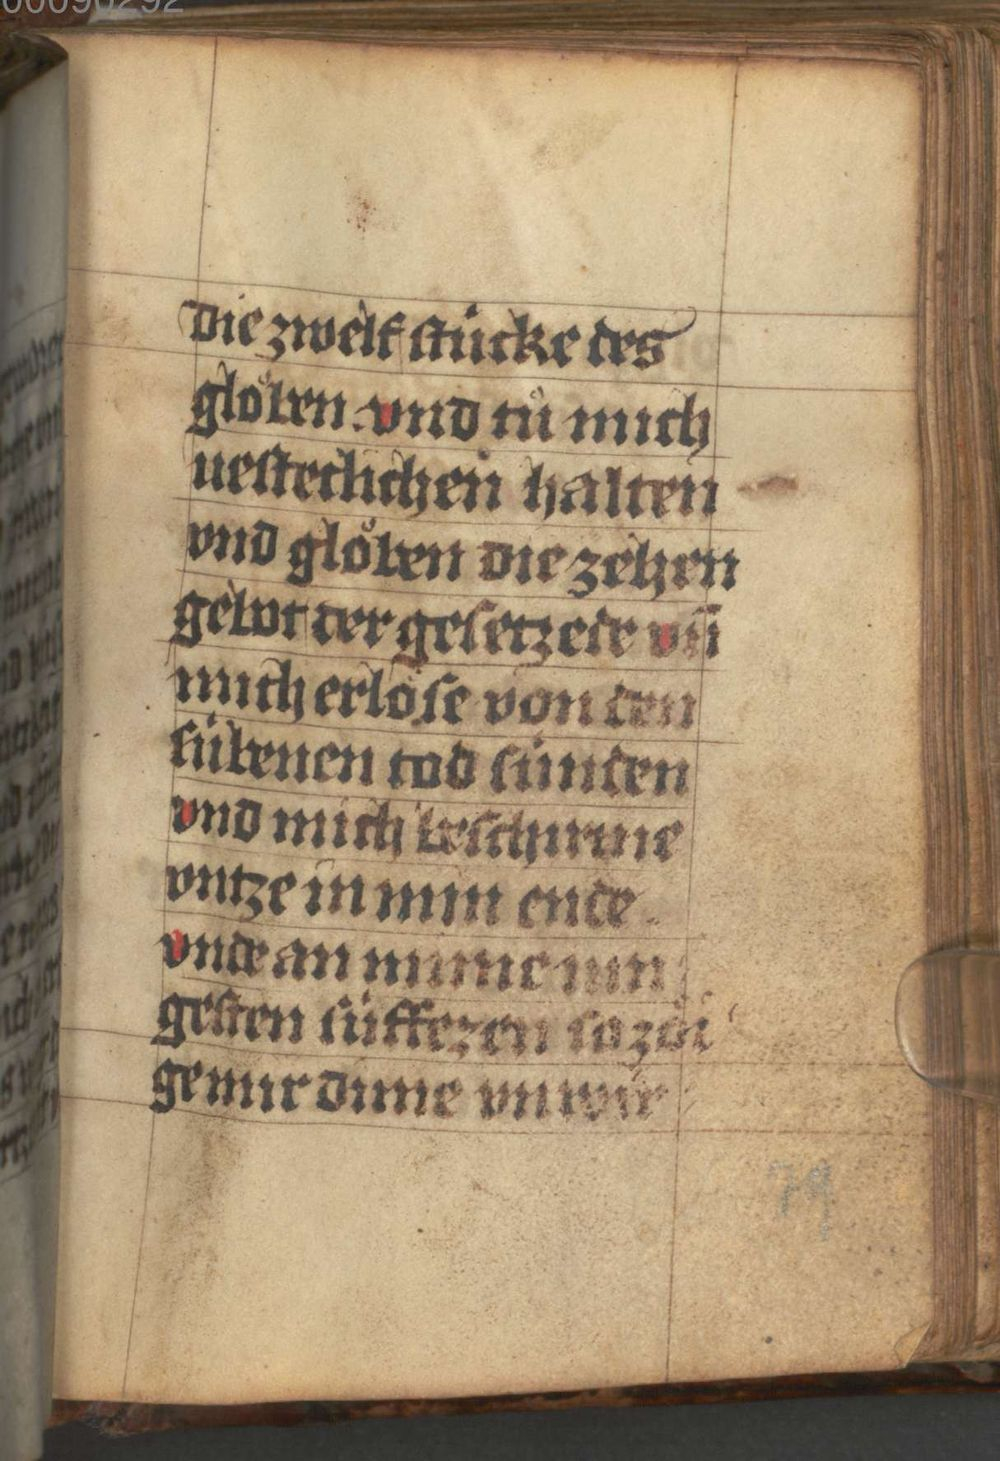 00090292
die zwelf stücke des
gloͤben. vnd tuͦ mich
uesteclichen halten
vnd gloͤben die zehen
gebot der gesetzede vn̄
mich erlose von den
súbenen tod súnden
vnd mich beschirme
vntze in min ende.
vnde an mime iun
gesten súffezen so zoi
ge mir dime vn wir
79